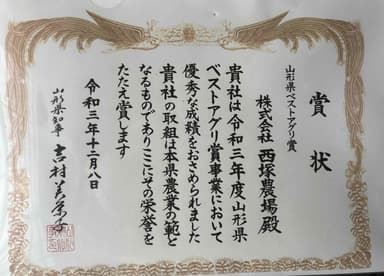 賞状
山形県ベストアグリ賞
株式会社 西塚農場殿
貴社は令和三年度山形県
ベストアグリ賞事業において
優秀な成績をおさめられました
貴社の取組は本県農業の範と
なるものでありここにその栄誉を
たたえ賞します
令和三年十二月八日
山形県知事 吉村美栄子